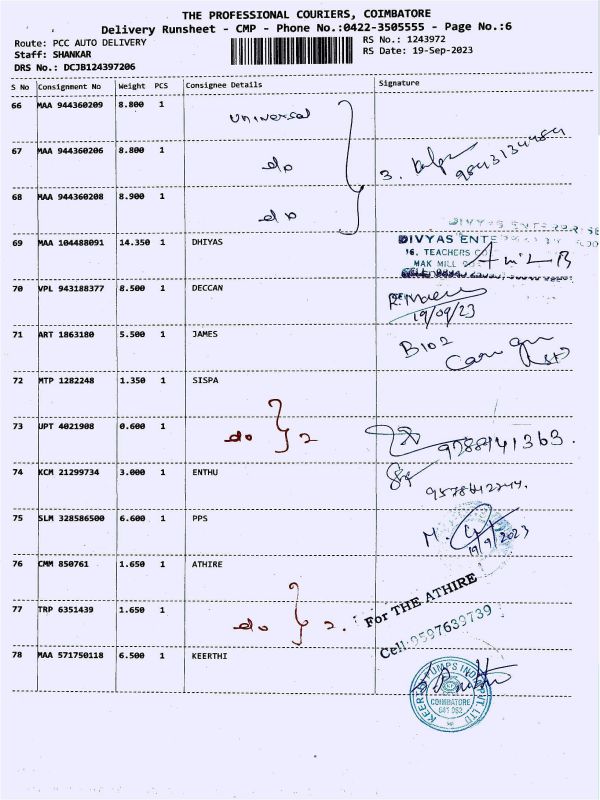 THE PROFESSIONAL COURIERS, COIMBATORE
Delivery Runsheet - CMP - Phone No.:0422-3505555 - Page No.:6
Route: PCC AUTO DELIVERY
RS No.: 1243972
Staff: SHANKAR
RS Date: 19-Sep-2023
DRS No.: DCJB124397206
S No Consignment No Weight PCS Consignee Details Signature
66 MAA 944360209 8.800 1 Universal
67 MAA 944360206 8.800 1 do 3.
68 MAA 944360208 8.900 1 do
69 MAA 104488091 14.350 1 DHIYAS DIVYAS ENTE
16, TEACHERS
MAK MILL
70 VPL 943188377 8.500 1 DECCAN
19/09/23
71 ART 1863180 5.500 1 JAMES B102
72 MTP 1282248 1.350 1 SISPA
73 UPT 4021908 0.600 1 do } 2
74 KCM 21299734 3.000 1 ENTHU
75 SLM 328586500 6.600 1 PPS
19/9/2023
76 CMM 850761 1.650 1 ATHIRE
77 TRP 6351439 1.650 1 do } 2. For THE ATHIRE
Cell:9597639739
78 MAA 571750118 6.500 1 KEERTHI
COIMBATORE